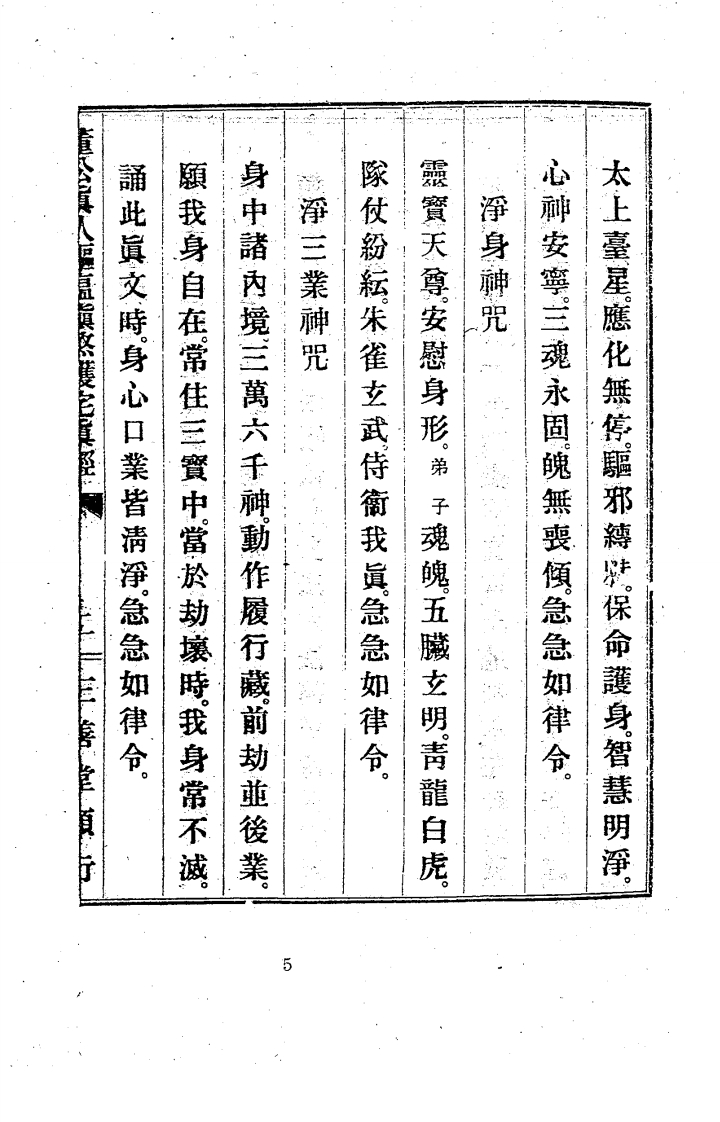 太上臺星。應化無停。驅邪縛鬽。保命護身。智慧明淨。
心神安寧。三魂永固。魄無喪傾。急急如律令。
淨身神咒
靈寶天尊。安慰身形。弟子魂魄。五臟玄明。靑龍白虎。
隊仗紛紜。朱雀玄武。侍衞我眞。急急如律令。
淨三業神咒
身中諸內境。三萬六千神。動作履行藏。前劫並後業。
願我身自在。常住三寶中。當於劫壞時。我身常不滅。
誦此眞文時。身心口業皆淸淨。急急如律令。
董公眞人驅瘟鎭煞護宅眞經
善堂
5